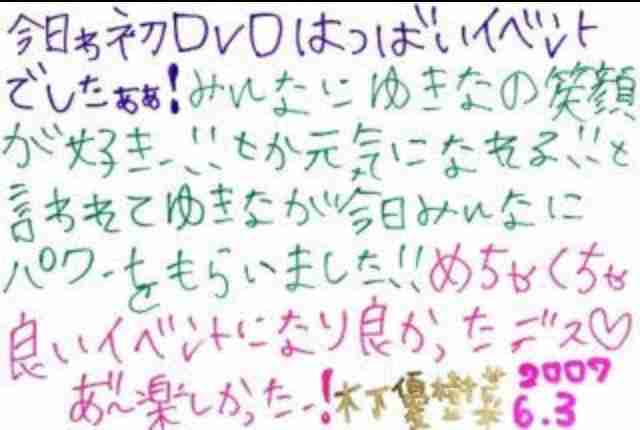 今日ゎ初DVDはつばいイベント
でしたぁぁ!みんなにゆきなの笑顔
が好きー!!とか元気になれる!!と
言われてゆきなが今日みんなに
パワーをもらいました!!めちゃくちゃ
良いイベントになり良かったデス♡
あ゛〜楽しかったー!木下優樹菜 2007
6.3